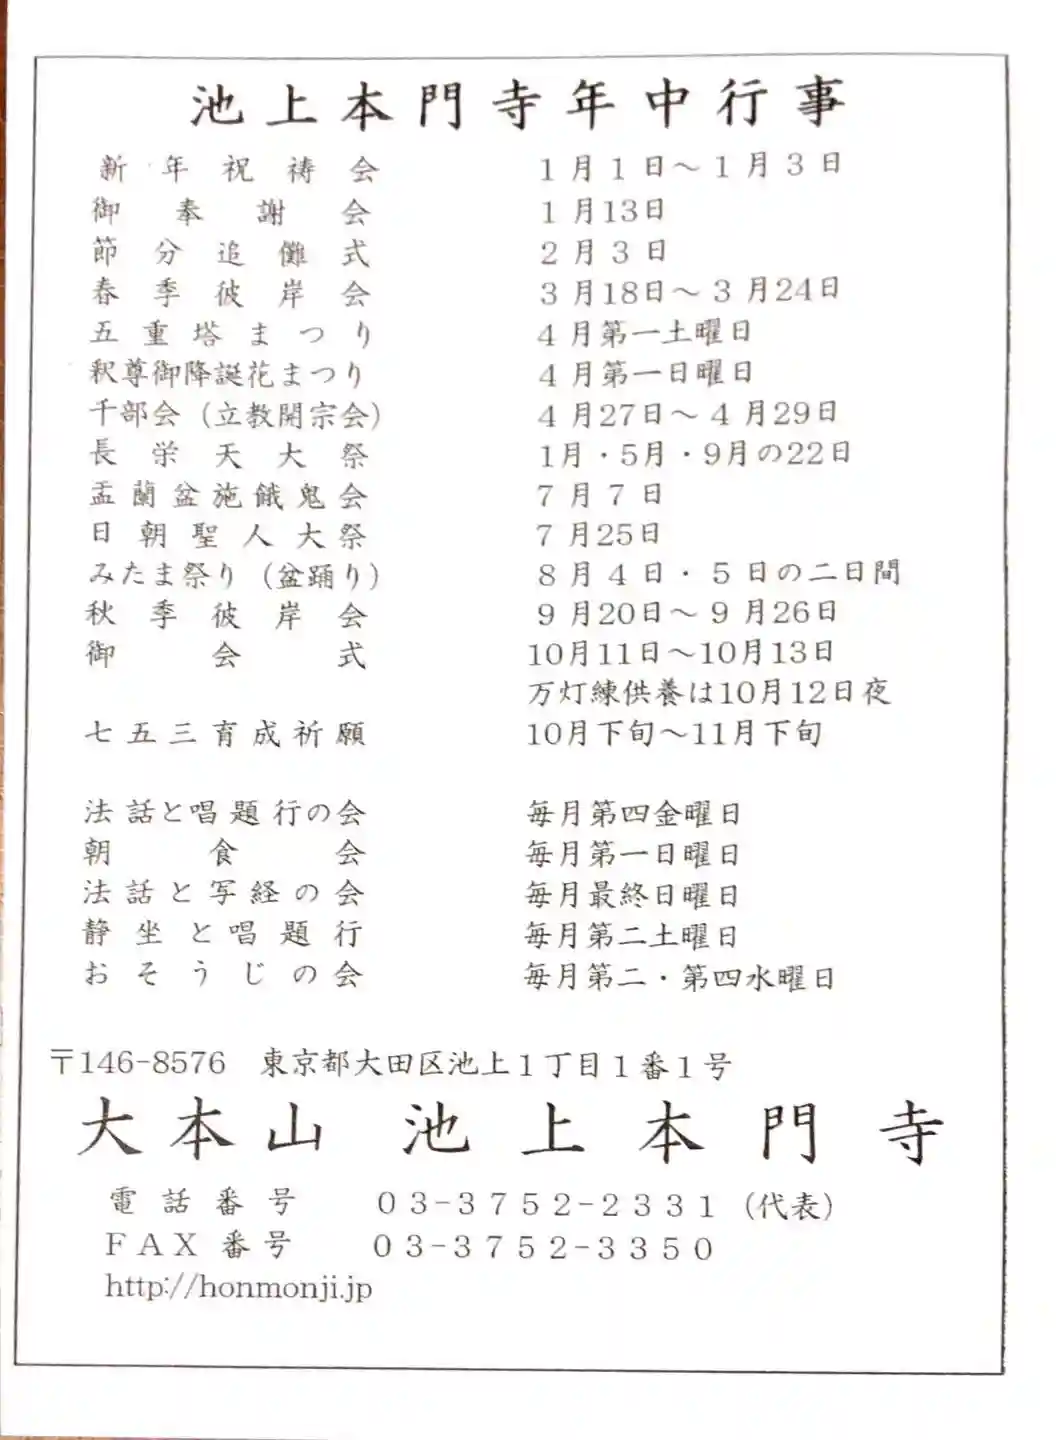 池上本門寺年中行事
新年祝祷会 1月1日～1月3日
御奉謝会 1月13日
節分追儺式 2月3日
春季彼岸会 3月18日～3月24日
五重塔まつり 4月第一土曜日
釈尊御降誕花まつり 4月第一日曜日
千部会（立教開宗会） 4月27日～4月29日
長栄天大祭 1月・5月・9月の22日
盂蘭盆施餓鬼会 7月7日
日朝聖人大祭 7月25日
みたま祭り（盆踊り） 8月4日・5日の二日間
秋季彼岸会 9月20日～9月26日
御会式 10月11日～10月13日
万灯練供養は10月12日夜
七五三育成祈願 10月下旬～11月下旬
法話と唱題行の会 毎月第四金曜日
朝食会 毎月第一日曜日
法話と写経の会 毎月最終日曜日
静坐と唱題行 毎月第二土曜日
おそうじの会 毎月第二・第四水曜日
〒146-8576 東京都大田区池上1丁目1番1号
大本山 池上本門寺
電話番号 03-3752-2331（代表）
FAX番号 03-3752-3350
http://honmonji.jp